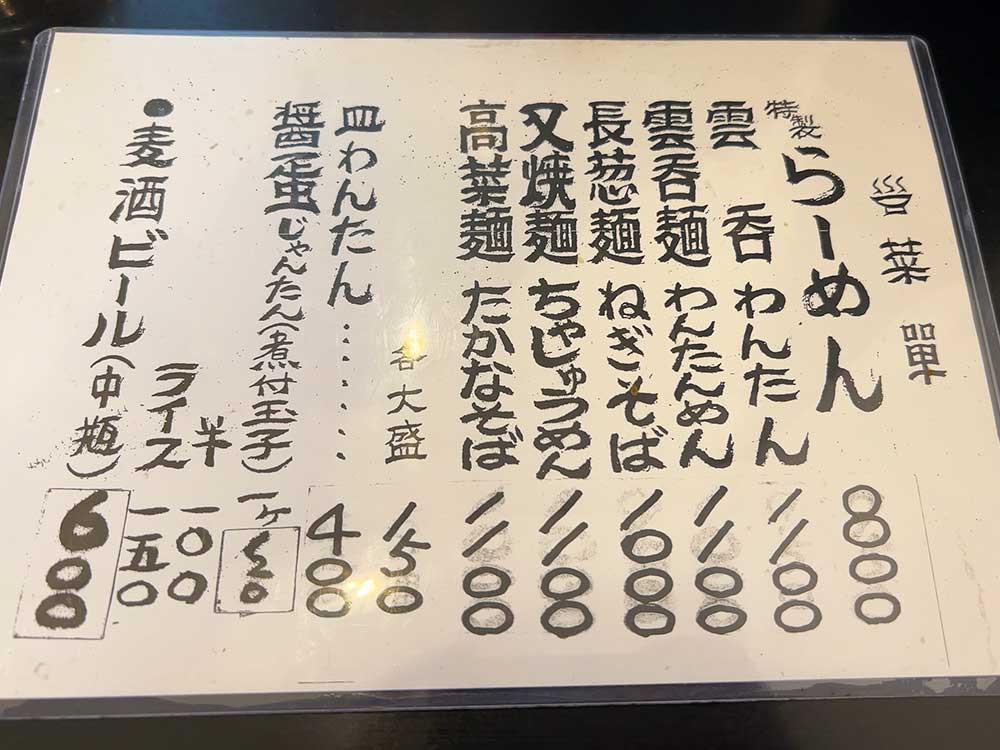 営菜單
特製らーめん 800
雲呑 わんたん 1100
雲呑麺 わんたんめん 1100
長葱麺 ねぎそば 1000
叉焼麺 ちゃしゅうめん 1100
高菜麺 たかなそば 1100
各大盛 150
皿わんたん…… 400
醤蛋じゃんたん(煮付玉子) 一ヶ
半 一〇〇
ライス 一五〇
●麦酒ビール(中瓶) 600